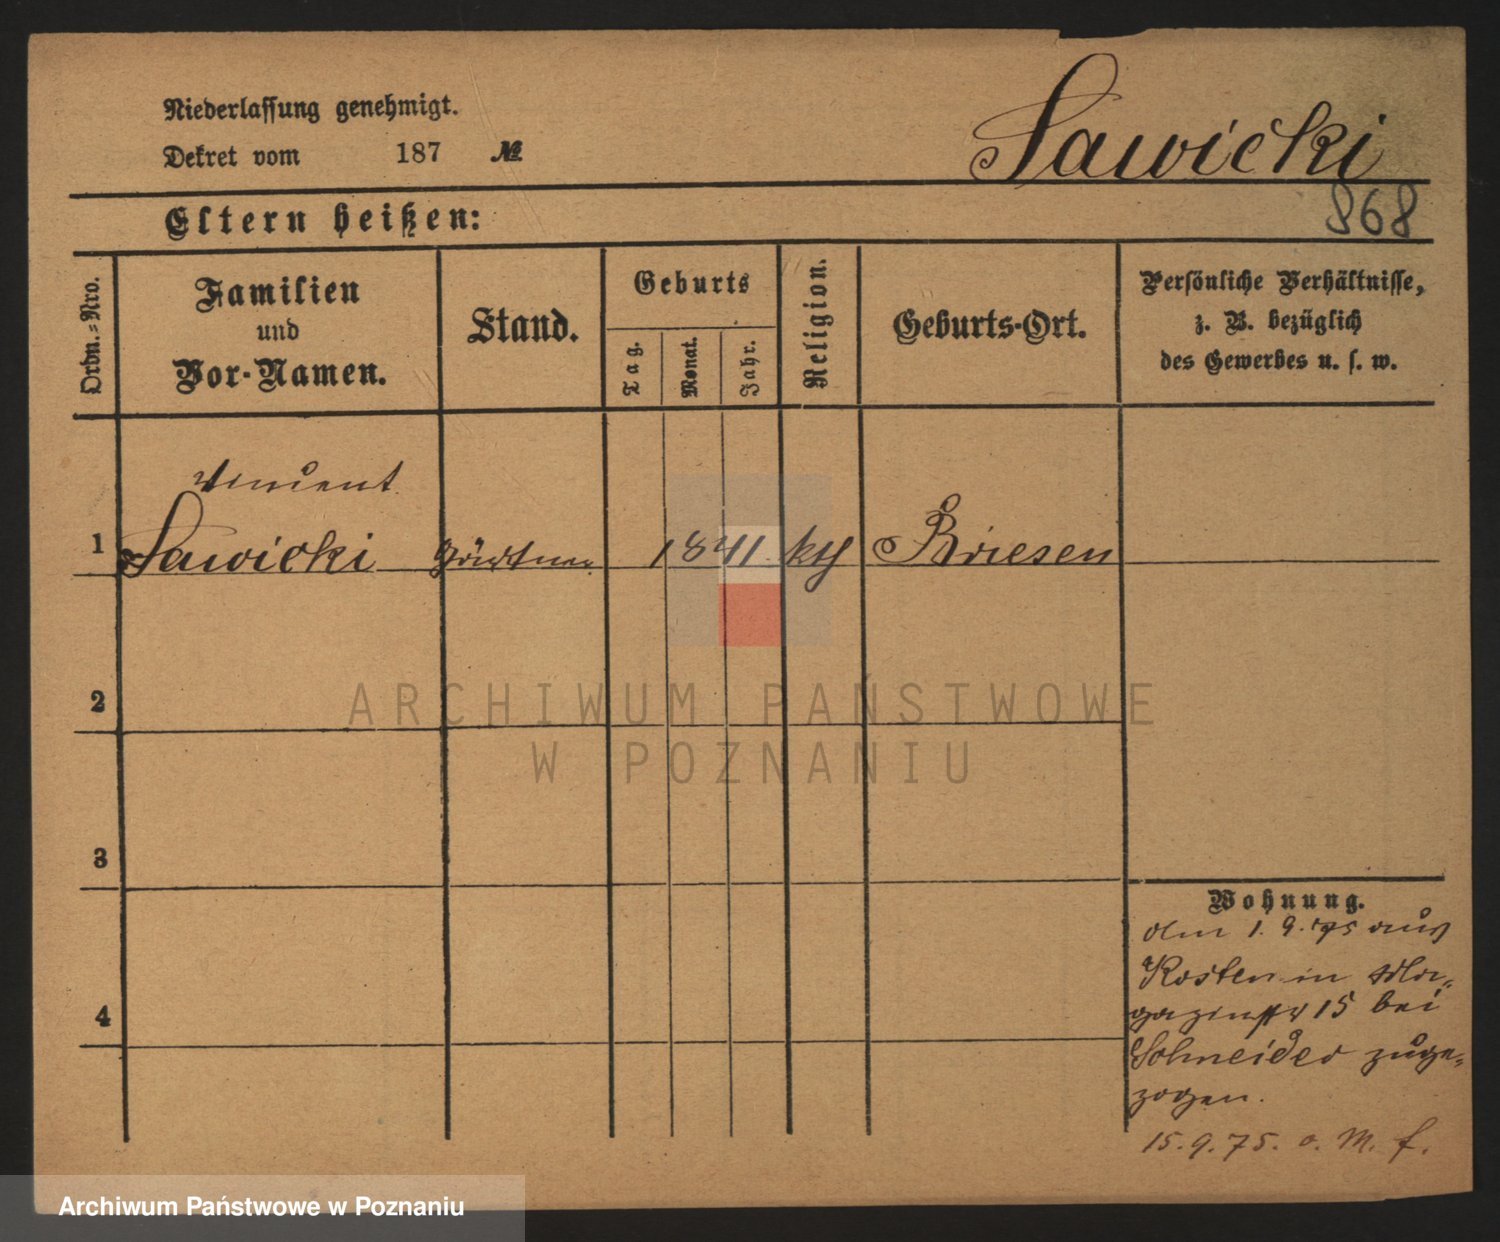 Niederlassung genehmigt.
Dekret vom 187 №
Sawicki
868
Eltern heißen:
Ordn.-Nro.
Familien
und
Vor-Namen.
Stand.
Geburts
Tag.
Monat.
Jahr.
Religion.
Geburts-Ort.
Persönliche Verhältnisse,
z. B. bezüglich
des Gewerbes u. s. w.
Vincent
1 Sawicki Gärtner 1841 kth Briesen
2
3
4
Wohnung.
Am 1.9.75 aus
Kosten in Ma-
gazinstr 15 bei
Schneider zuge-
zogen.
15.9.75. o. M. f.
ARCHIWUM PAŃSTWOWE
W POZNANIU
Archiwum Państwowe w Poznaniu